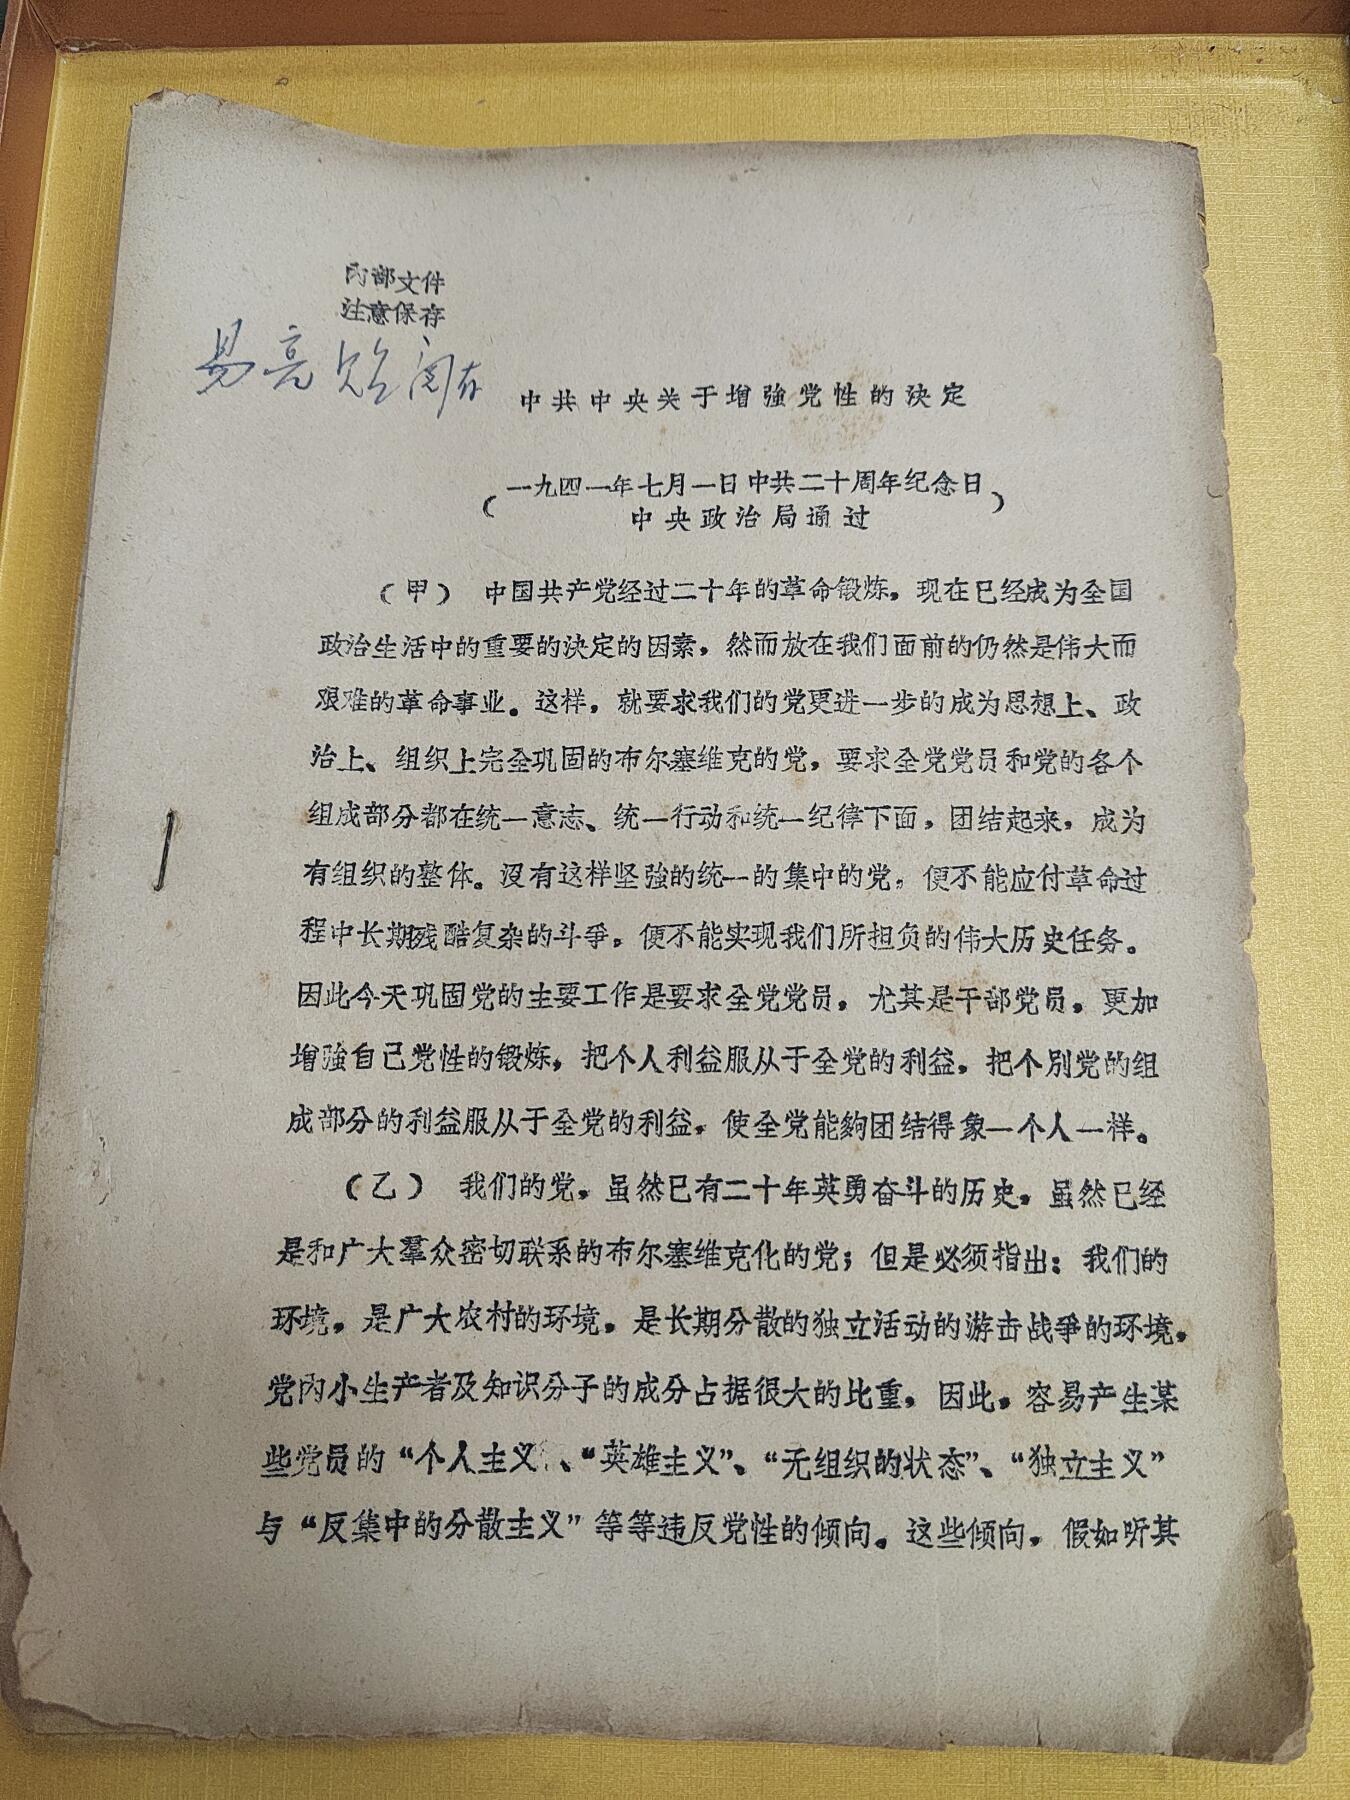 内部文件
注意保存
易亮 阅存
中共中央关于增強党性的决定
（一九四一年七月一日中共二十周年纪念日
中央政治局通过）
（甲） 中国共产党经过二十年的革命锻炼，现在已经成为全国
政治生活中的重要的决定的因素，然而放在我们面前的仍然是伟大而
艰难的革命事业。这样，就要求我们的党更进一步的成为思想上、政
治上、组织上完全巩固的布尔塞维克的党，要求全党党员和党的各个
组成部分都在统一意志、统一行动和统一纪律下面，团结起来，成为
有组织的整体。沒有这样坚強的统一的集中的党，便不能应付革命过
程中长期残酷复杂的斗爭，便不能实现我们所担负的伟大历史任务。
因此今天巩固党的主要工作是要求全党党员，尤其是干部党员，更加
增強自己党性的锻炼，把个人利益服从于全党的利益，把个別党的组
成部分的利益服从于全党的利益，使全党能夠团结得象一个人一样。
（乙） 我们的党，虽然已有二十年英勇奋斗的历史，虽然已经
是和广大羣众密切联系的布尔塞维克化的党；但是必须指出：我们的
环境，是广大农村的环境，是长期分散的独立活动的游击战爭的环境，
党內小生产者及知识分子的成分占据很大的比重，因此，容易产生某
些党员的“个人主义”、“英雄主义”、“无组织的状态”、“独立主义”
与“反集中的分散主义”等等违反党性的倾向。这些倾向，假如听其